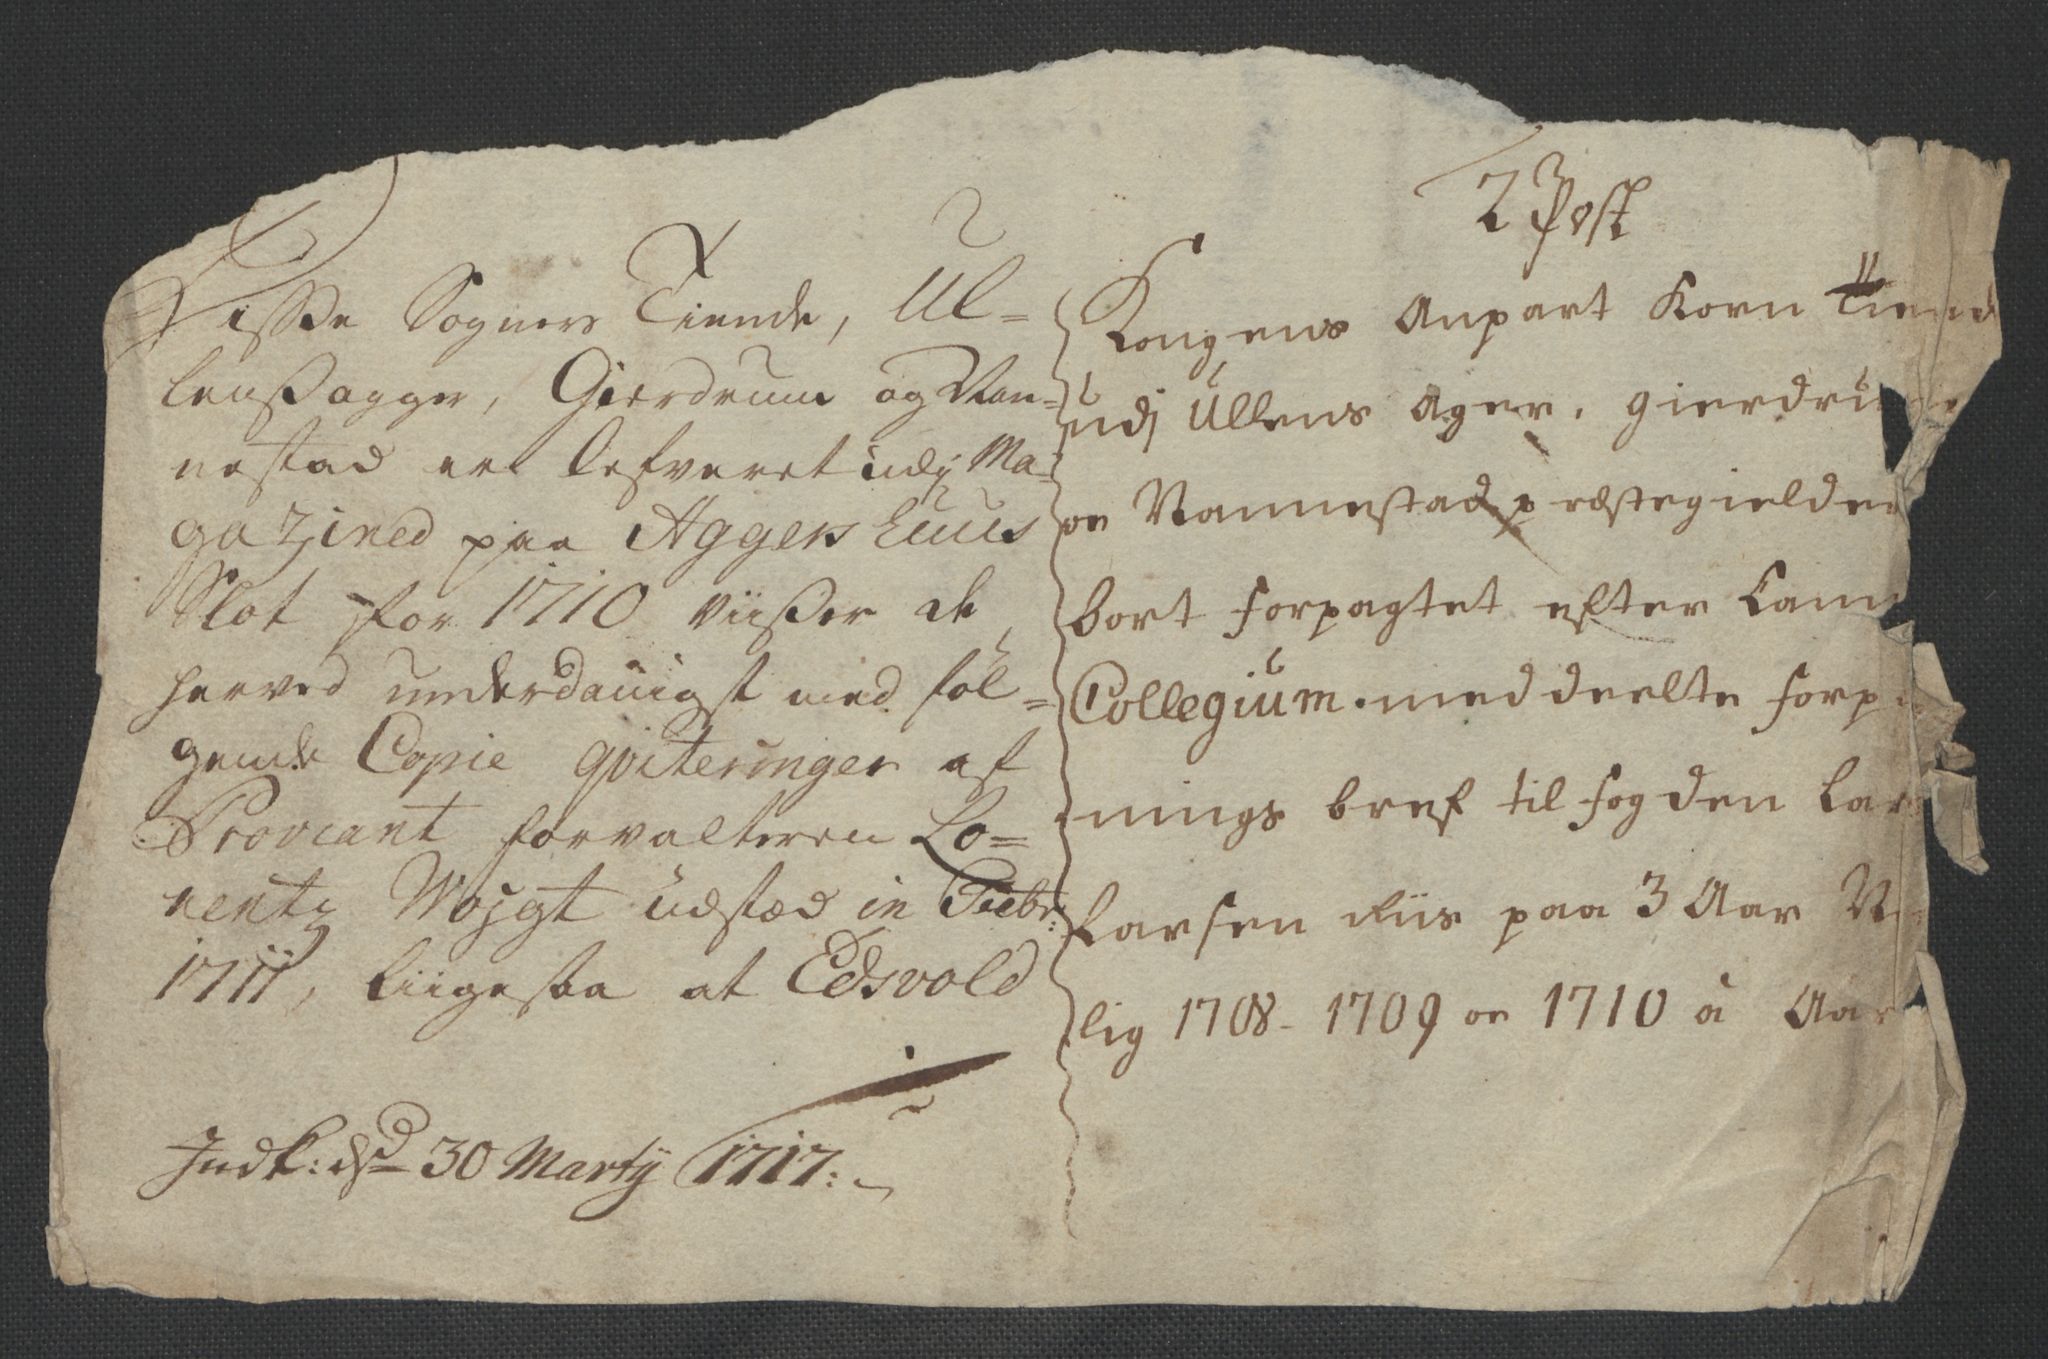 Disse Sogners Tiende, Ul-
lensagger, Gierdrum og Nan-
nestad ere lefveret udj Ma-
gazined paa Aggershuus
Slot for 1710 viisser de
herved underdanigst med føl-
gende Copie qviteringer af
Proviant forvalteren Lo-
rentz Wojgt udstæd in Febr:
1711, liigesaa at Edsvold
Indk: d 30 Martij 1717:
2 Post
Kongens Anpart Korn Tiend
udj Ullens Ager, gierdrum
oc Nannestad præstegielder
bort forpagtet efter Cam
Collegium meddeelte forp
nings bref til fogden Lar
Larsen Riis paa 3 Aar N
lig 1708 - 1709 oc 1710 à Aar